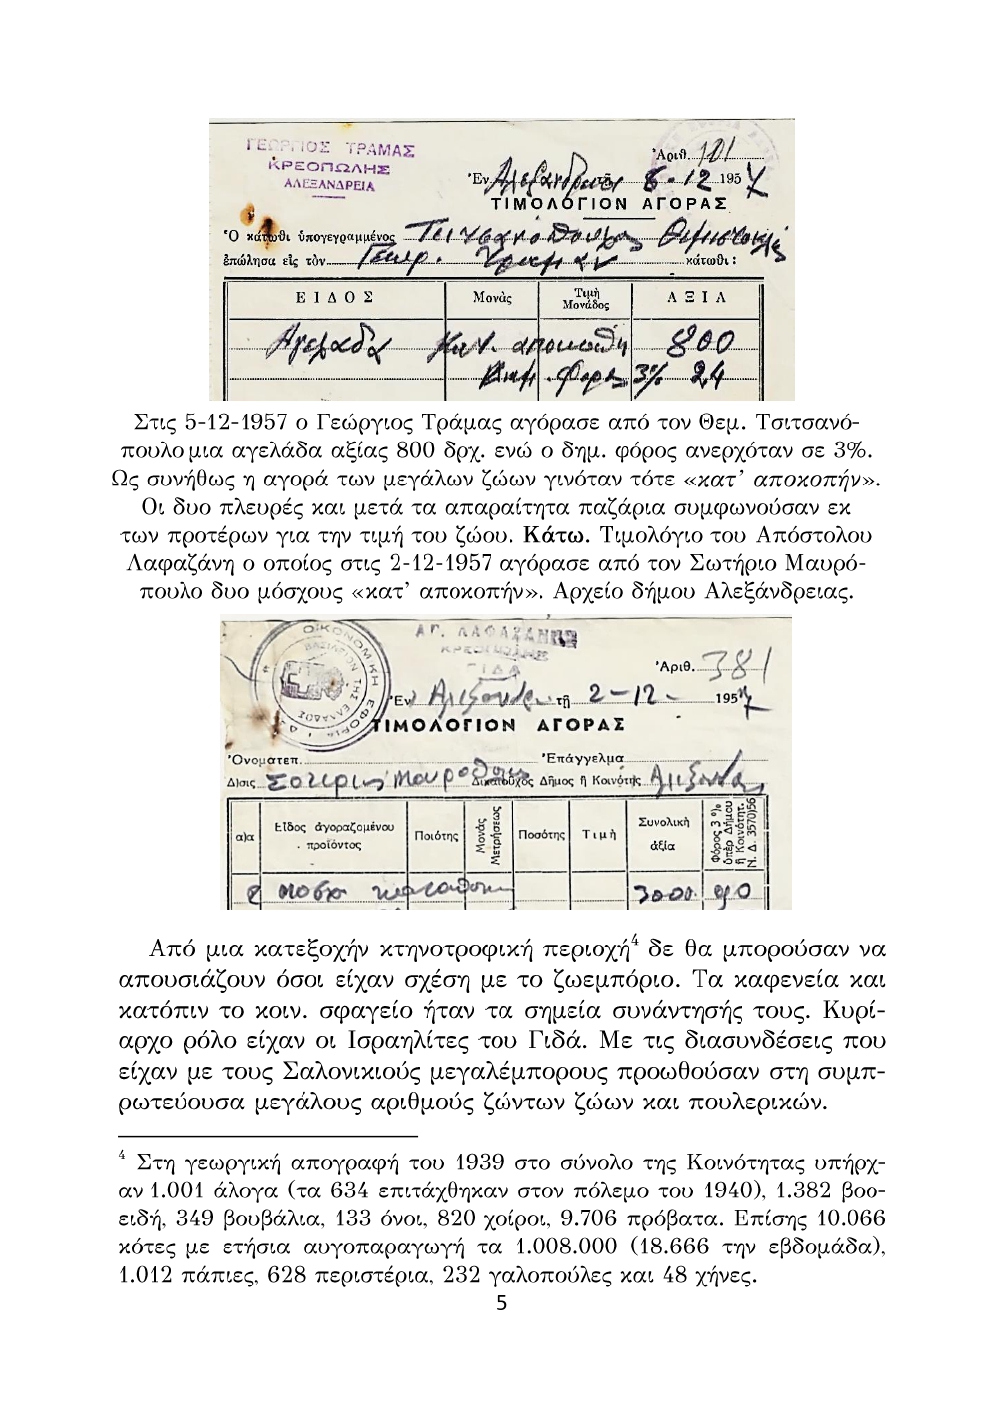 ΓΕΩΡΓΙΟΣ ΤΡΑΜΑΣ
ΚΡΕΟΠΩΛΗΣ
ΑΛΕΞΑΝΔΡΕΙΑ
Ἀριθ. 101
Ἐν Αλεξάνδρεια τῇ 5-12 1957
ΤΙΜΟΛΟΓΙΟΝ ΑΓΟΡΑΣ
Ὁ κάτωθι ὑπογεγραμμένος Τσιτσανόπουλος Θεμιστοκλής
ἐπώλησα εἰς τὸν Γεώρ. Τράμαν κάτωθι:
ΕΙΔΟΣ Μονὰς Τιμὴ Μονάδος ΑΞΙΑ
Αγελάδα κατ. αποκοπή 800
Δημ. Φόρος 3% 24
Στις 5-12-1957 ο Γεώργιος Τράμας αγόρασε από τον Θεμ. Τσιτσανό-
πουλο μια αγελάδα αξίας 800 δρχ. ενώ ο δημ. φόρος ανερχόταν σε 3%.
Ως συνήθως η αγορά των μεγάλων ζώων γινόταν τότε «κατ’ αποκοπήν».
Οι δυο πλευρές και μετά τα απαραίτητα παζάρια συμφωνούσαν εκ
των προτέρων για την τιμή του ζώου. Κάτω. Τιμολόγιο του Απόστολου
Λαφαζάνη ο οποίος στις 2-12-1957 αγόρασε από τον Σωτήριο Μαυρό-
πουλο δυο μόσχους «κατ’ αποκοπήν». Αρχείο δήμου Αλεξάνδρειας.
ΟΙΚΟΝΟΜΙΚΗ ΕΦΟΡΙΑ
ΒΑΣΙΛΕΙΟΝ ΤΗΣ ΕΛΛΑΔΟΣ
ΑΠ. ΛΑΦΑΖΑΝΗΣ
ΚΡΕΟΠΩΛΗΣ
ΓΙΔΑ
Ἀριθ. 381
Ἐν Αλεξάνδρ. τῇ 2-12- 1957
ΤΙΜΟΛΟΓΙΟΝ ΑΓΟΡΑΣ
Ὀνοματεπ. Ἐπάγγελμα
Δ)σις Σοτέριος Μαυρόπουλος Δικαιοῦχος Δῆμος ἢ Κοινότης Αλεξάνδρειας
α)α Εἶδος ἀγοραζομένου προϊόντος Ποιότης Μονὰς Μετρήσεως Ποσότης Τιμὴ Συνολικὴ ἀξία Φόρος 3% ὑπὲρ Δήμου ἢ Κοινότητ. Ν. Δ. 3570)56
2 μοσχ 3000 90
Από μια κατεξοχήν κτηνοτροφική περιοχή⁴ δε θα μπορούσαν να
απουσιάζουν όσοι είχαν σχέση με το ζωεμπόριο. Τα καφενεία και
κατόπιν το κοιν. σφαγείο ήταν τα σημεία συνάντησής τους. Κυρί-
αρχο ρόλο είχαν οι Ισραηλίτες του Γιδά. Με τις διασυνδέσεις που
είχαν με τους Σαλονικιούς μεγαλέμπορους προωθούσαν στη συμπ-
ρωτεύουσα μεγάλους αριθμούς ζώντων ζώων και πουλερικών.
⁴ Στη γεωργική απογραφή του 1939 στο σύνολο της Κοινότητας υπήρχ-
αν 1.001 άλογα (τα 634 επιτάχθηκαν στον πόλεμο του 1940), 1.382 βοο-
ειδή, 349 βουβάλια, 133 όνοι, 820 χοίροι, 9.706 πρόβατα. Επίσης 10.066
κότες με ετήσια αυγοπαραγωγή τα 1.008.000 (18.666 την εβδομάδα),
1.012 πάπιες, 628 περιστέρια, 232 γαλοπούλες και 48 χήνες.
5